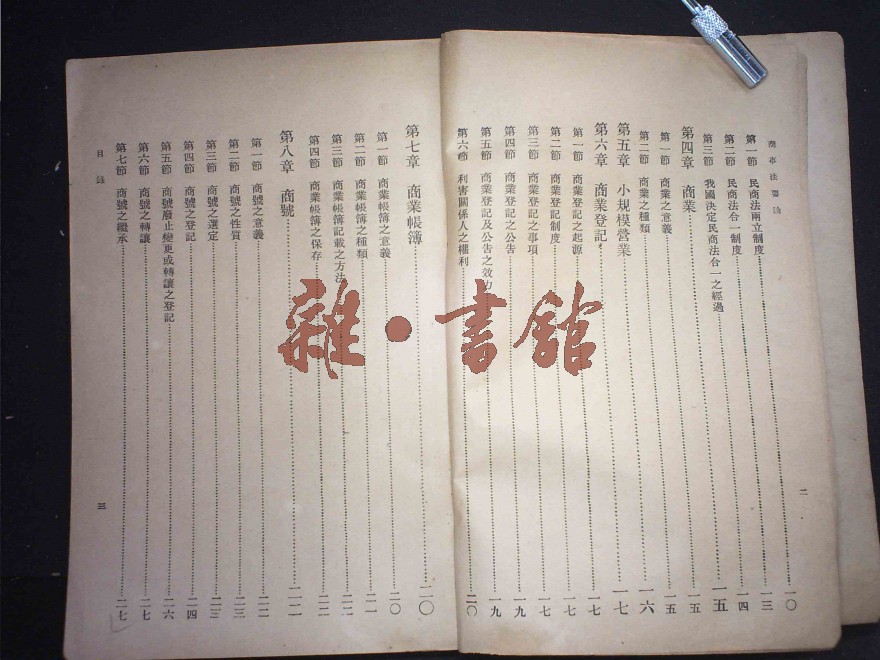 商事法要論
二
第一節 民商法兩立制度……一〇
第二節 民商法合一制度……一三
第三節 我國決定民商法合一之經過……一四
第四章 商業……一五
第一節 商業之意義……一五
第二節 商業之種類……一五
第五章 小規模營業……一六
第六章 商業登記……一七
第一節 商業登記之起源……一七
第二節 商業登記制度……一七
第三節 商業登記之事項……一七
第四節 商業登記之公告……一九
第五節 商業登記及公告之效力……一九
第六節 利害關係人之權利……二〇
第七章 商業帳簿……二〇
第一節 商業帳簿之意義……二〇
第二節 商業帳簿之種類……二一
第三節 商業帳簿記載之方法……二二
第四節 商業帳簿之保存……二二
第八章 商號……二二
第一節 商號之意義……二二
第二節 商號之性質……二三
第三節 商號之選定……二三
第四節 商號之登記……二四
第五節 商號廢止變更或轉讓之登記……二六
第六節 商號之轉讓……二七
第七節 商號之繼承……二七
目錄
三
雜·書館